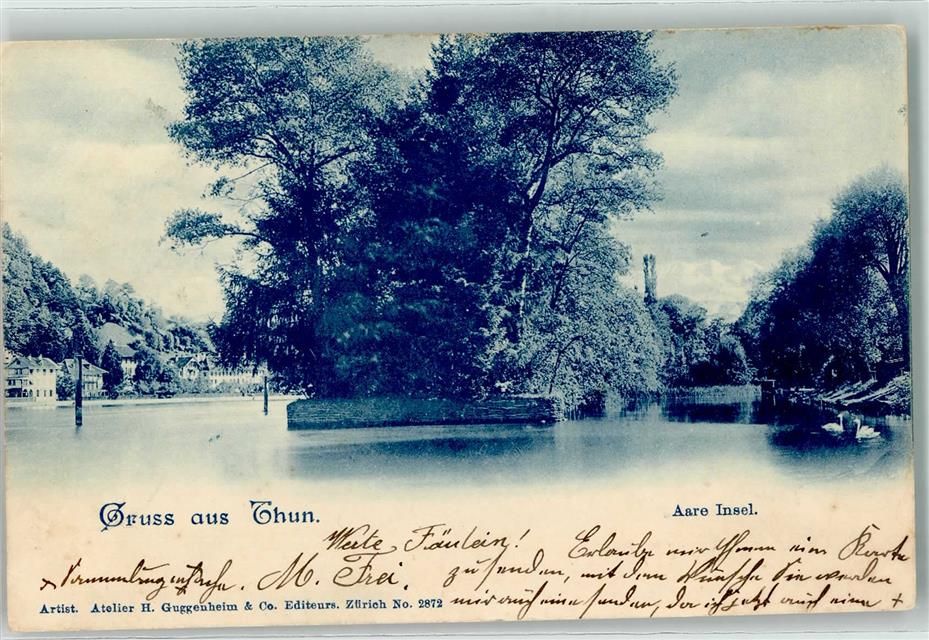 Gruss aus Thun.
Aare Insel.
Werte Fräulein! Erlaube mir Ihnen ein Karte
zusenden, mit dem Wunsche Sie werden
mir auch eine senden, da ich jetzt auch eine +
M. Frei.
Artist. Atelier H. Guggenheim & Co. Editeurs. Zürich No. 2872